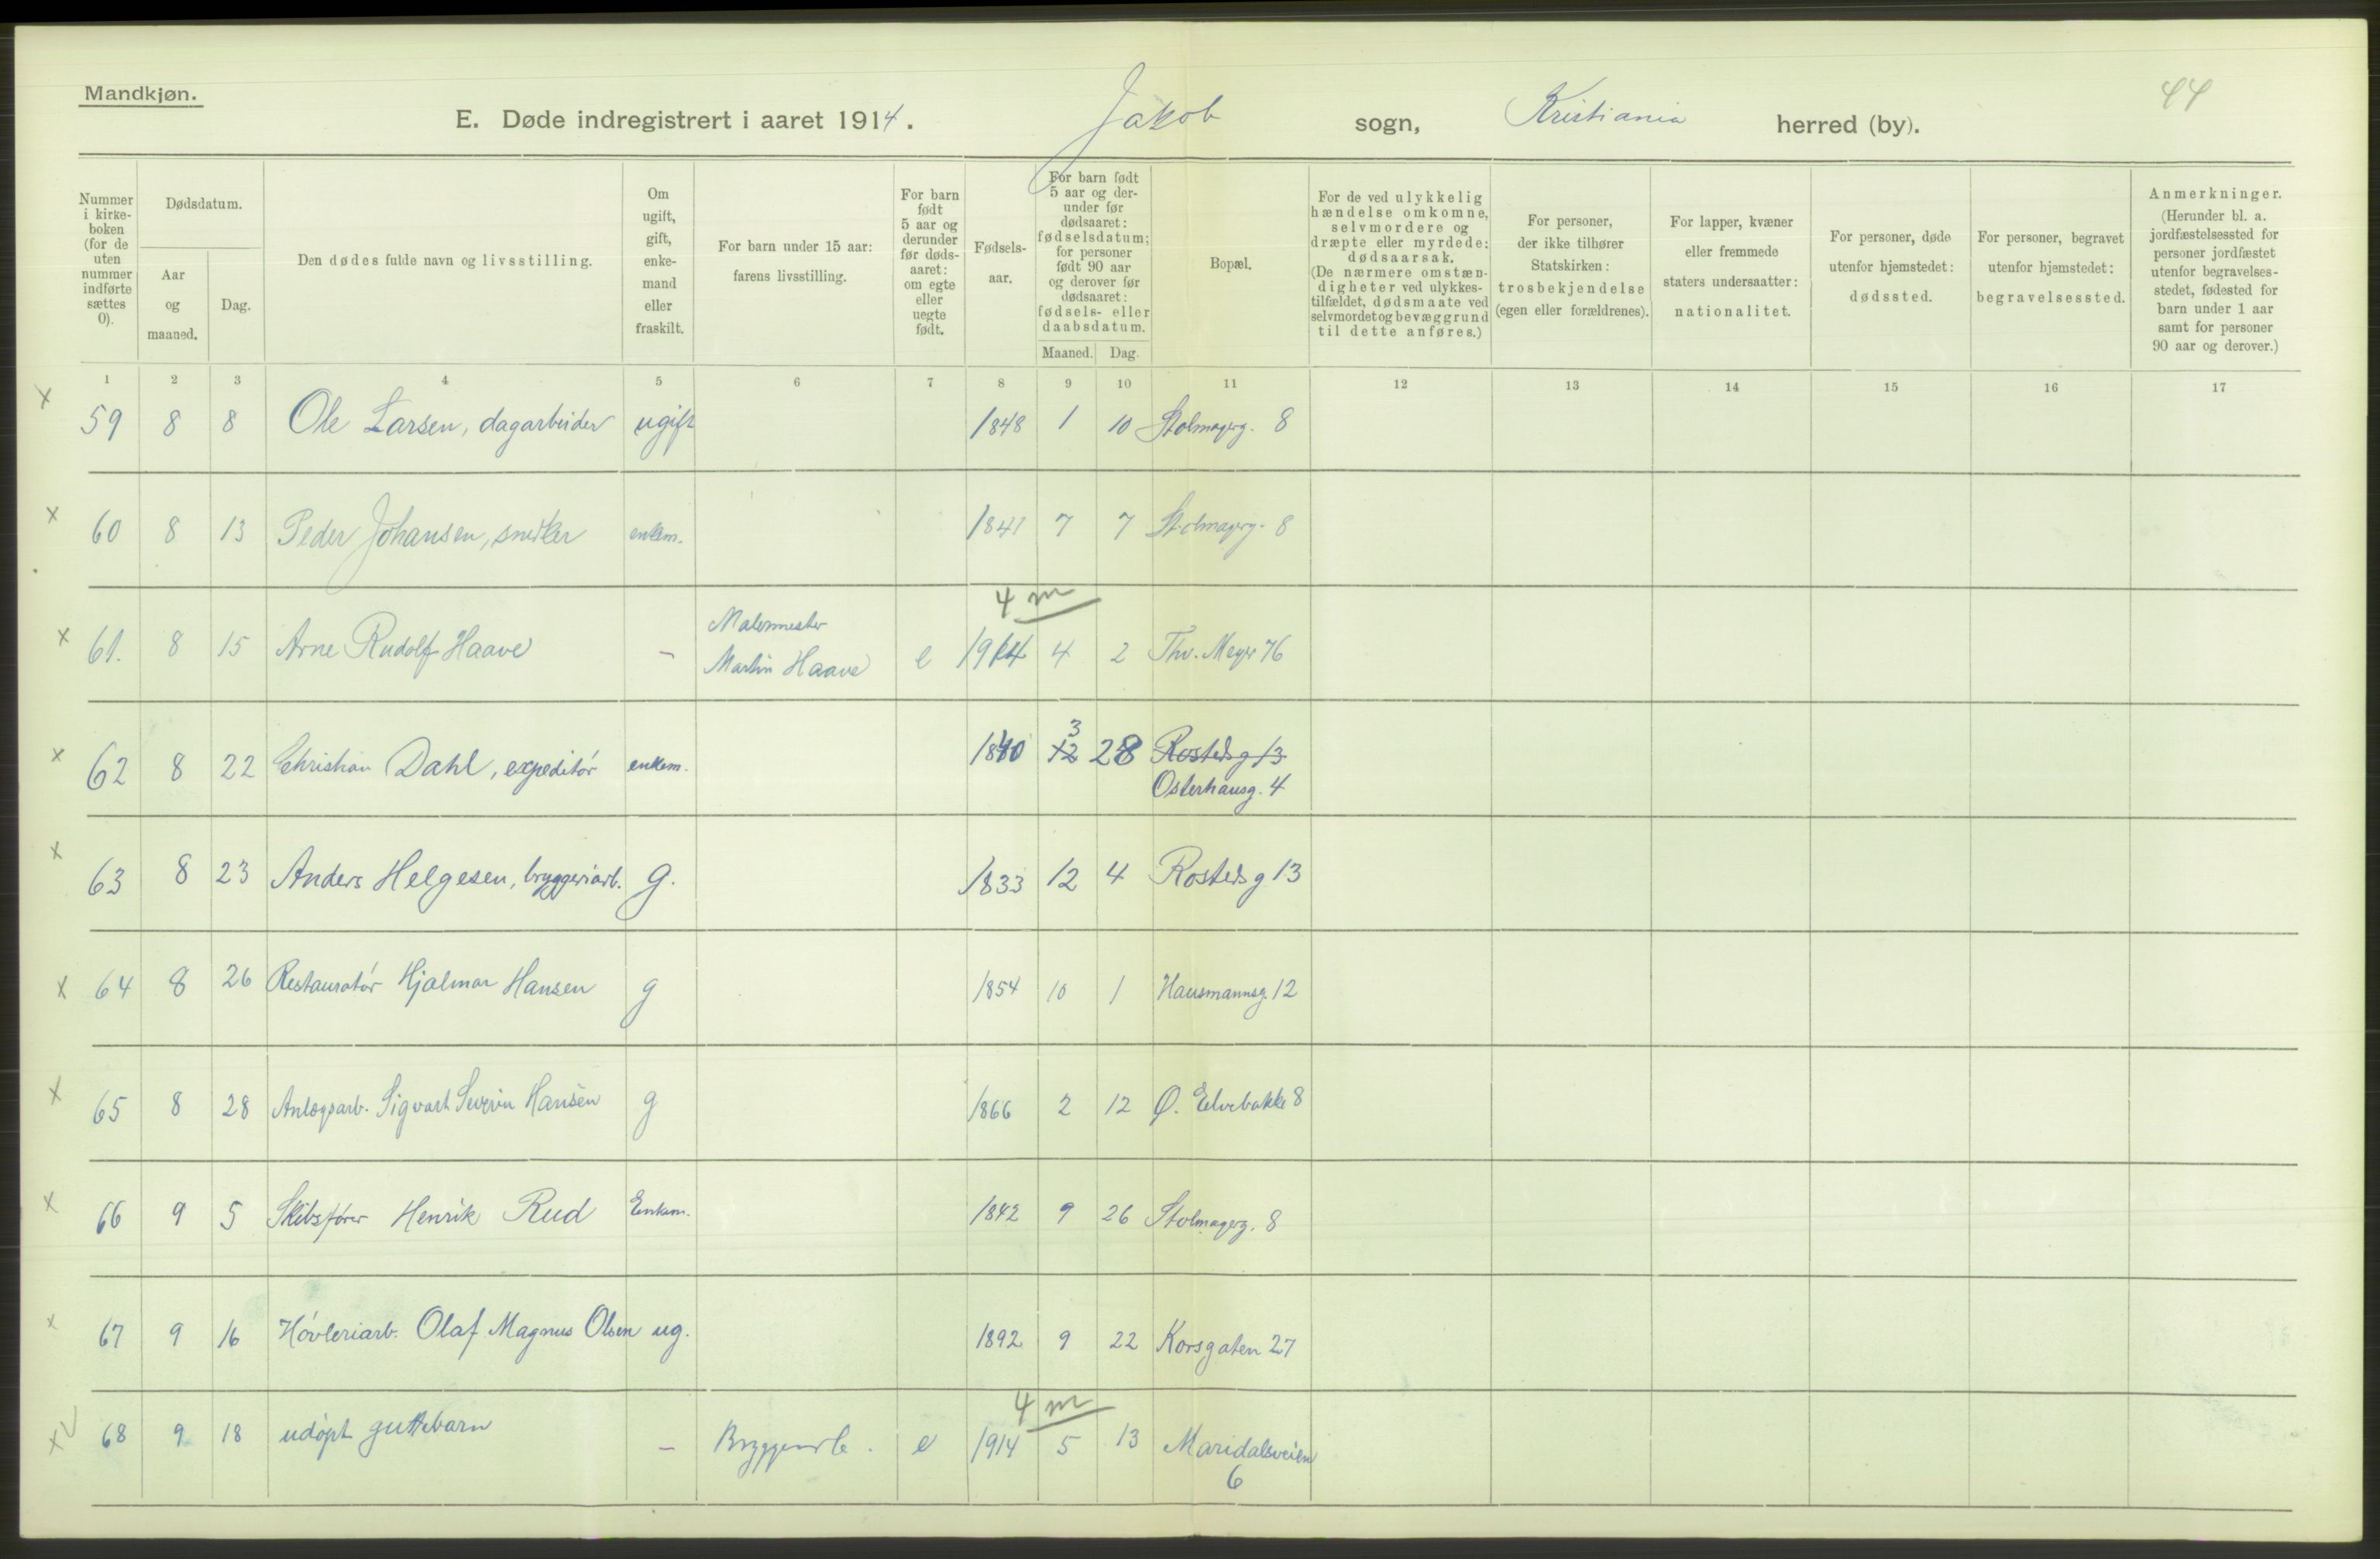 Mandkjøn.
44
E. Døde indregistrert i aaret 1914. Jakob sogn, Kristiania herred (by).
Nummer i kirke-boken (for de uten nummer indførte sættes 0).
Dødsdatum.
Aar og maaned.
Dag.
Den dødes fulde navn og livsstilling.
Om ugift, gift, enke-mand eller fraskilt.
For barn under 15 aar: farens livsstilling.
For barn født 5 aar og derunder før døds-aaret: om egte eller uegte født.
Fødsels-aar.
For barn født 5 aar og der-under før dødsaaret: fødselsdatum; for personer født 90 aar og derover før dødsaaret: fødsels- eller daabsdatum.
Maaned. Dag.
Bopæl.
For de ved ulykkelig hændelse omkomne, selvmordere og dræpte eller myrdede: dødsaarsak. (De nærmere omstæn-digheter ved ulykkes-tilfældet, dødsmaate ved selvmordet og bevæggrund til dette anføres.)
For personer, der ikke tilhører Statskirken: trosbekjendelse (egen eller forældrenes).
For lapper, kvæner eller fremmede staters undersaatter: nationalitet.
For personer, døde utenfor hjemstedet: dødssted.
For personer, begravet utenfor hjemstedet: begravelsessted.
Anmerkninger. (Herunder bl. a. jordfæstelsessted for personer jordfæstet utenfor begravelses-stedet, fødested for barn under 1 aar samt for personer 90 aar og derover.)
1 2 3 4 5 6 7 8 9 10 11 12 13 14 15 16 17
x 59 8 8 Ole Larsen, dagarbeider ugift 1848 1 10 Stolmagerg. 8
x 60 8 13 Peder Johansen, snedker enkem. 1841 7 7 Stolmagerg. 8
4 m
Malermester
x 61. 8 15 Arne Rudolf Haave — Martin Haave e 1914 4 2 Thv. Meyer 76
3
x 62 8 22 Christian Dahl, expeditør enkem. 1840 12 28 Rosteds g 13
Osterhausg. 4
x 63 8 23 Anders Helgesen, bryggeriarb. g. 1833 12 4 Rosteds g 13
x 64 8 26 Restauratør Hjalmar Hansen g 1854 10 1 Hausmannsg. 12
x 65 8 28 Anlægsarb. Sigvart Severin Hansen g 1866 2 12 Ø. Elvebakke 8
x 66 9 5 Skibsfører Henrik Rud Enkem. 1842 9 26 Stolmagerg. 8
x 67 9 16 Høvleriarb. Olaf Magnus Olsen ug. 1892 9 22 Korsgaten 27
4 m
x 68 9 18 udøpt guttebarn — Bryggeriarb. e 1914 5 13 Maridalsveien
6